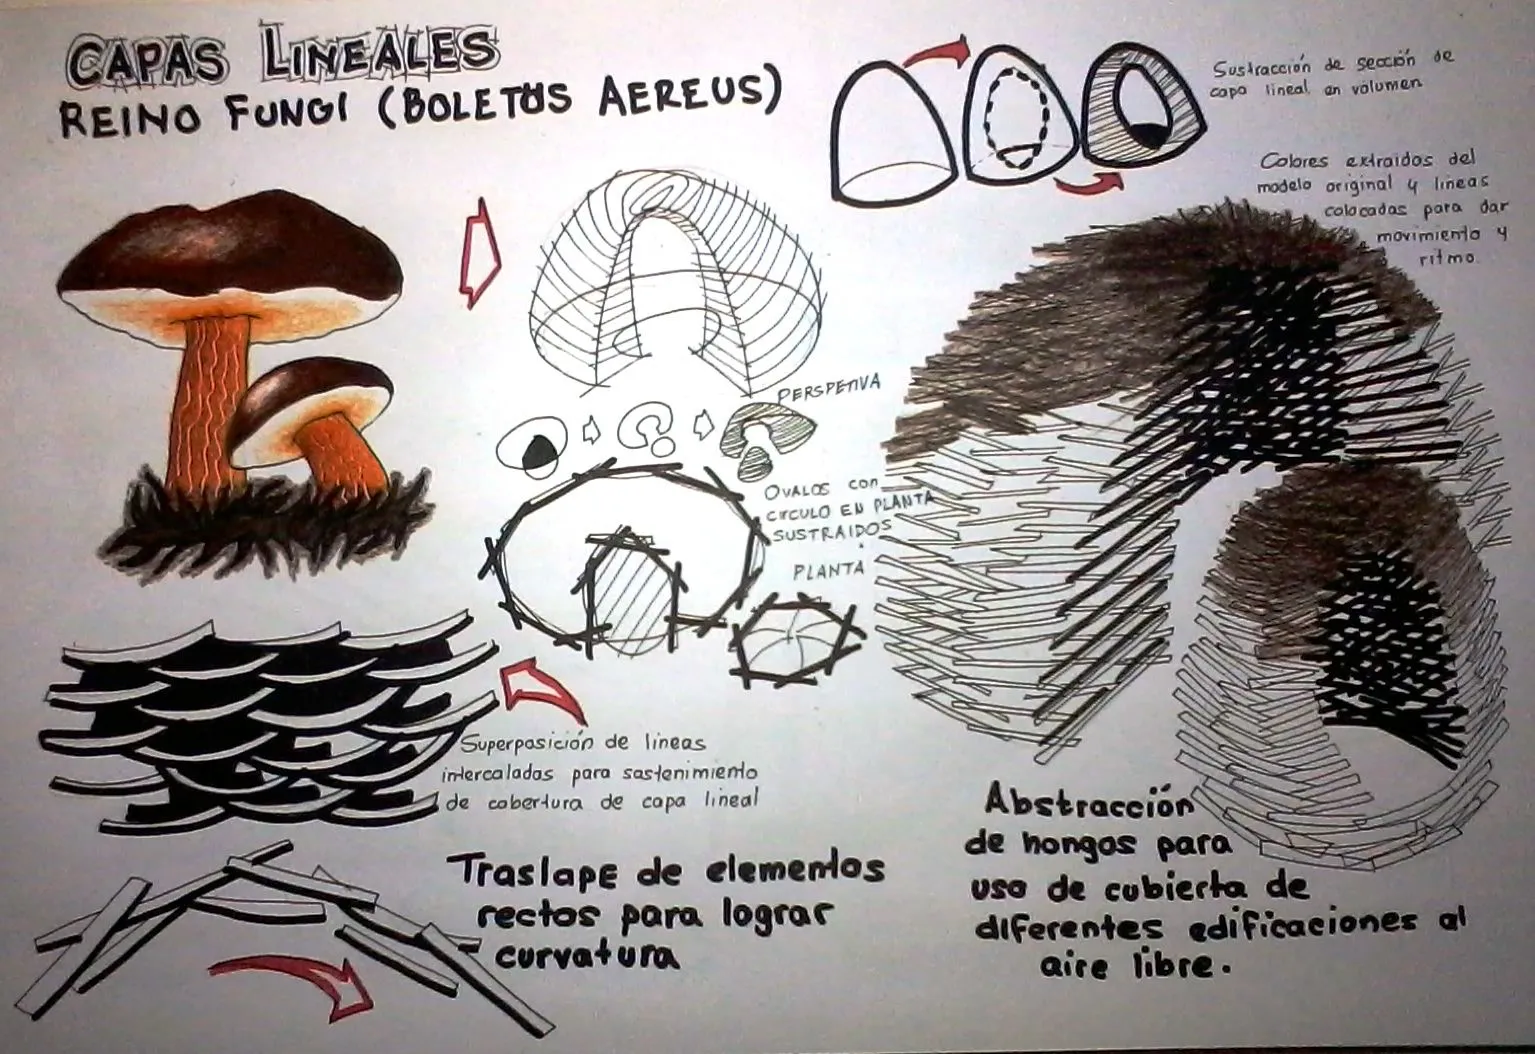 CAPAS LINEALES
REINO FUNGI (BOLETUS AEREUS)
Sustracción de sección de
capa lineal en volumen
Colores extraidos del
modelo original y lineas
colocadas para dar
movimiento y
ritmo.
PERSPETIVA
OVALOS con
CIRCULO EN PLANTA
SUSTRAIDOS
PLANTA
Superposición de lineas
intercaladas para sostenimiento
de cobertura de capa lineal
Traslape de elementos
rectos para lograr
curvatura
Abstracción
de hongos para
uso de cubierta de
diferentes edificaciones al
aire libre.